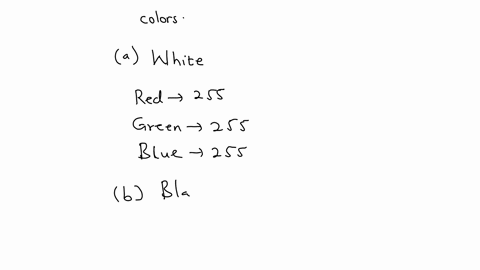 colors.
(a) White
Red → 255
Green → 255
Blue → 255
(b) Bla